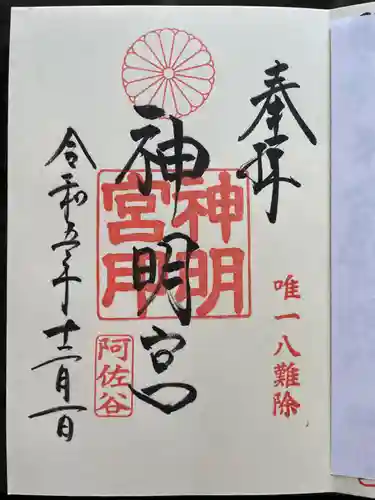 奉拝
唯一八難除
神明宮
神明宮
阿佐谷
令和五年十二月一日